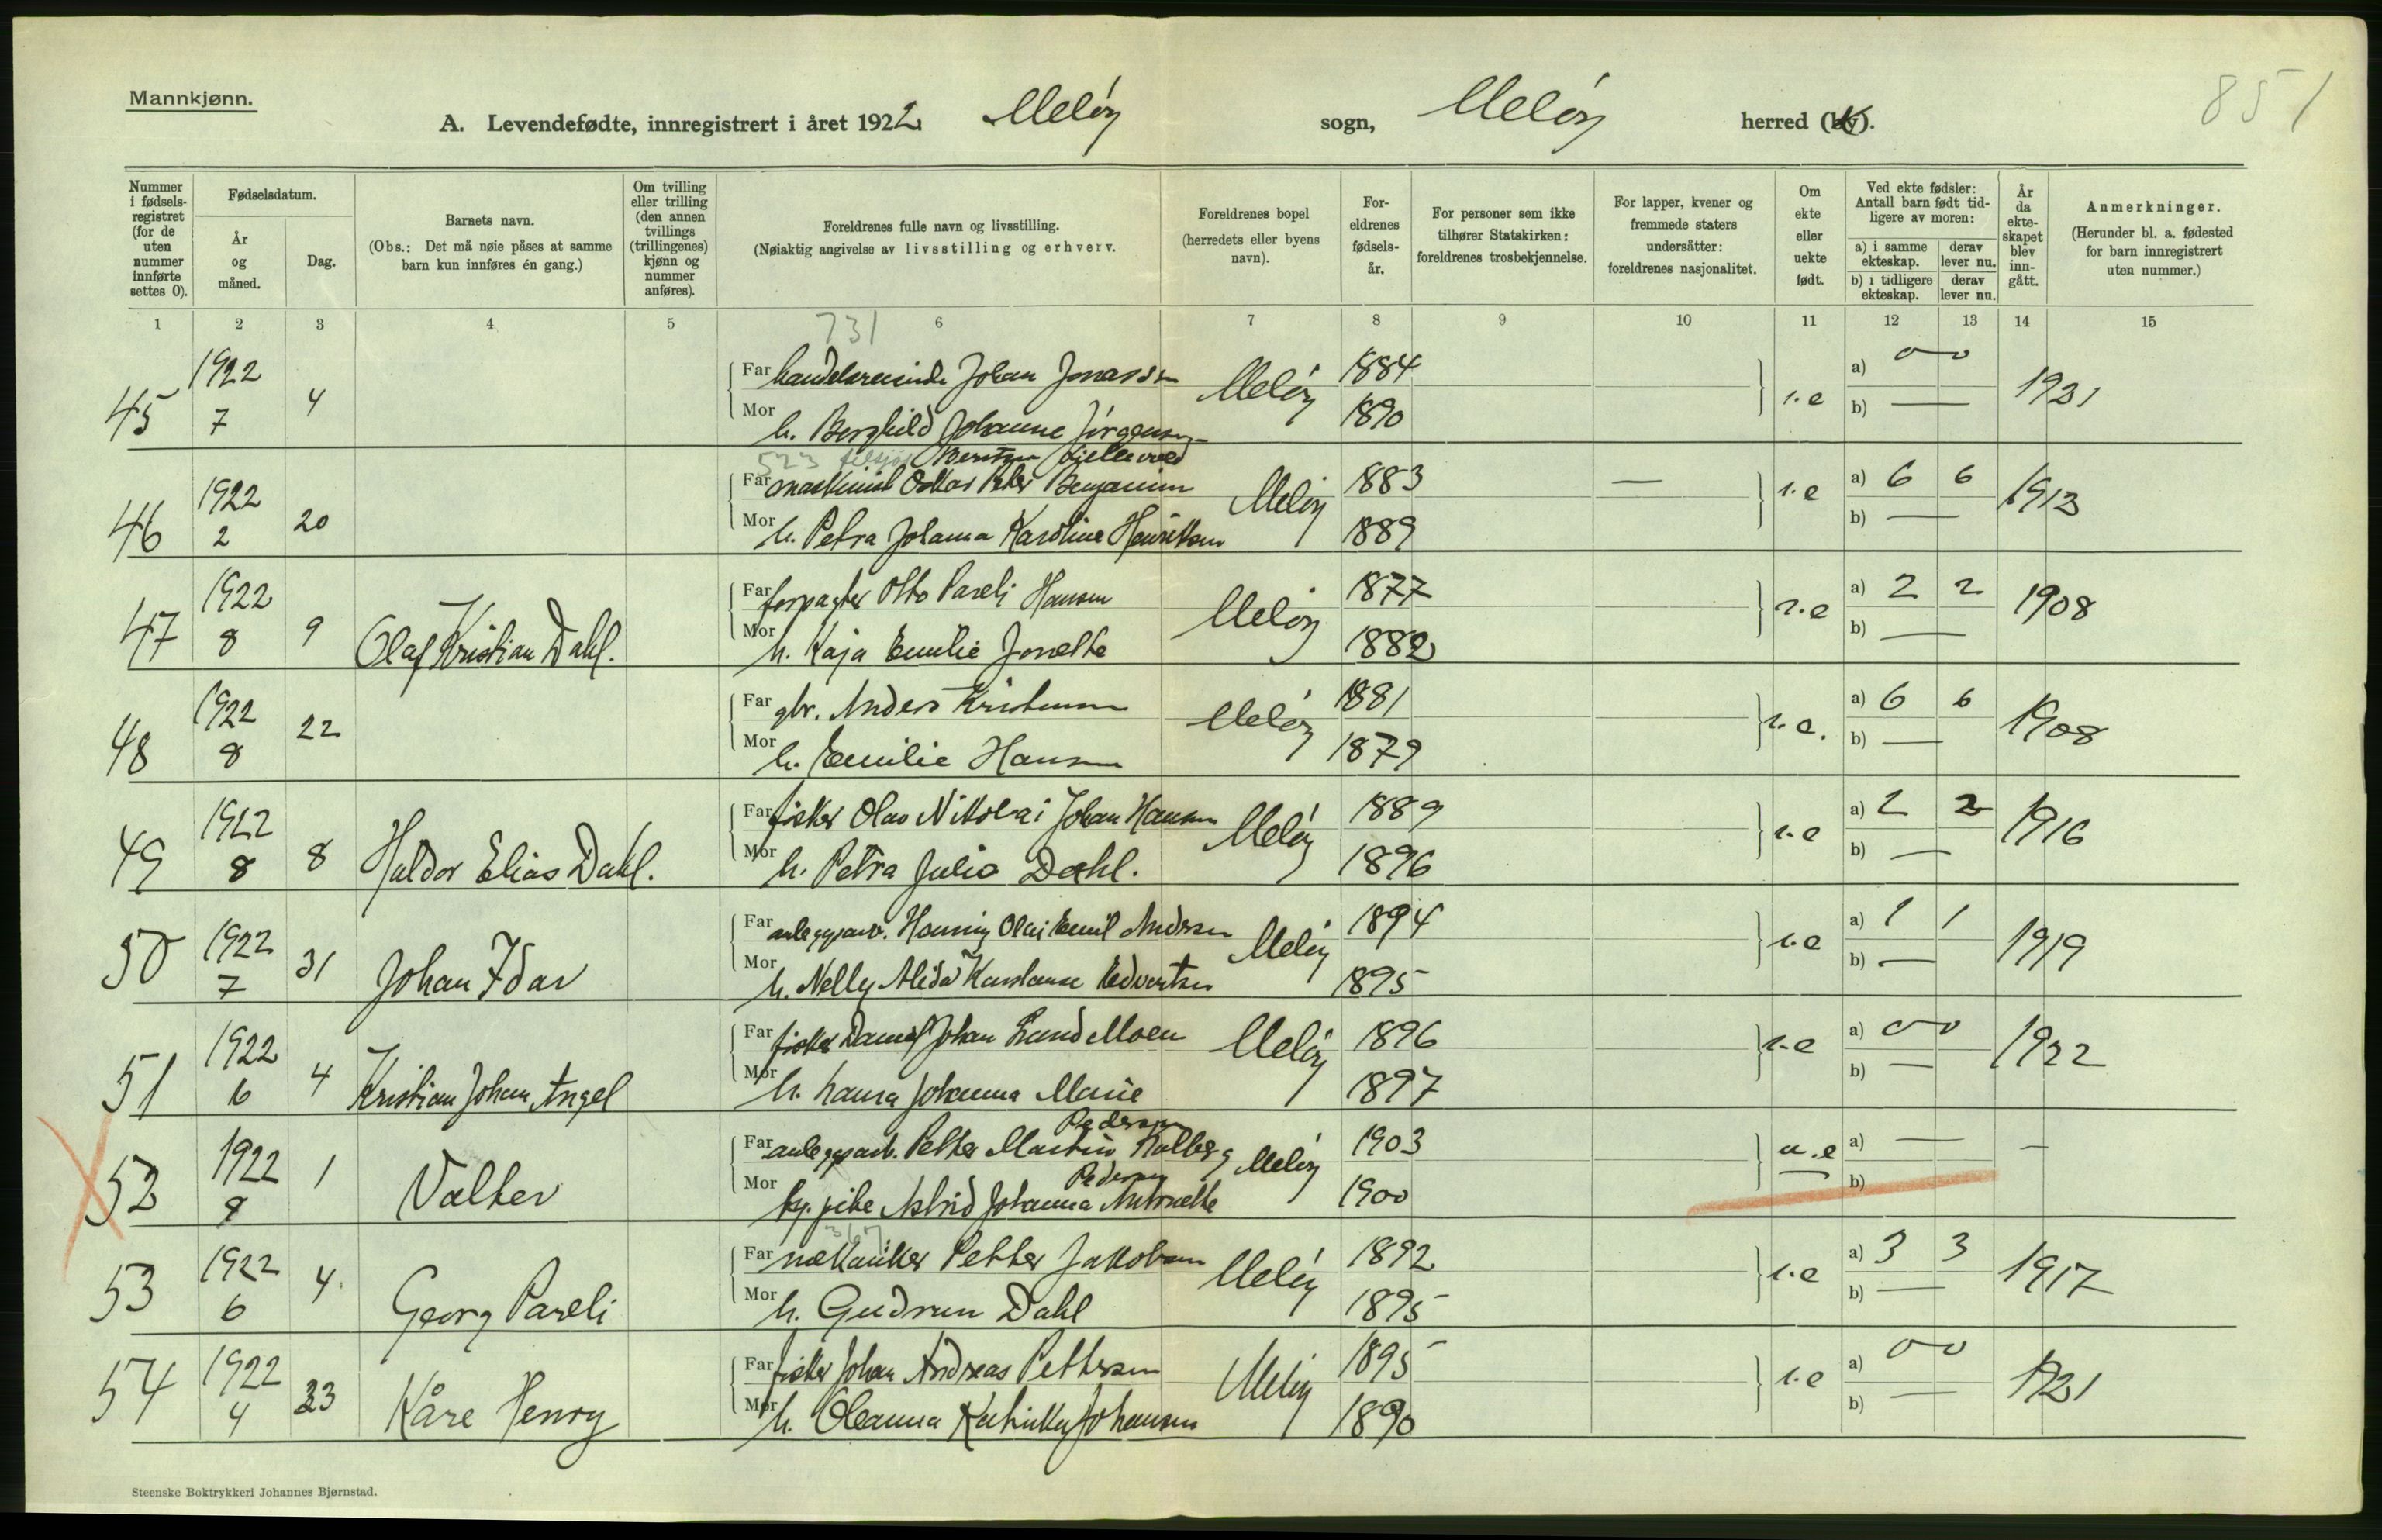 Mannkjønn.
851
A. Levendefødte, innregistrert i året 1922 Meløy sogn, Meløy herred (by).
Nummer i fødselsregistret (for de uten nummer innførte settes 0).
Fødselsdatum.
År og måned.
Dag.
Barnets navn.
(Obs.: Det må nøie påses at samme barn kun innføres én gang.)
Om tvilling eller trilling (den annen tvillings (trillingenes) kjønn og nummer anføres).
Foreldrenes fulle navn og livsstilling.
(Nøiaktig angivelse av livsstilling og erhverv.
Foreldrenes bopel (herredets eller byens navn).
Foreldrenes fødselsår.
For personer som ikke tilhører Statskirken: foreldrenes trosbekjennelse.
For lapper, kvener og fremmede staters undersåtter: foreldrenes nasjonalitet.
Om ekte eller uekte født.
Ved ekte fødsler: Antall barn født tidligere av moren:
a) i samme ekteskap.
derav lever nu.
b) i tidligere ekteskap.
derav lever nu.
År da ekteskapet blev inngått.
Anmerkninger.
(Herunder bl. a. fødested for barn innregistrert uten nummer.)
1 2 3 4 5 6 7 8 9 10 11 12 13 14 15
731
45 1922 7 4 Far Johan Jonassen Meløy 1884 e a) 0 0 1921
Mor h. Borghild Johanne Jørgensen 1890 b) —
523
46 1922 2 20 Far maskinist Oskar Peter Benjamin Meløy 1883 — e a) 6 6 1913
Mor h. Petra Johanna Karoline Henriksen 1889 b) —
47 1922 8 9 Olaf Kristian Dahl. Far forpagter Otto Pareli Hansen Meløy 1877 e a) 2 2 1908
Mor h. Kaja Emilie Jonette 1882 b) —
48 1922 8 22 Far gbr. Anders Kristensen Meløy 1881 e. a) 6 6 1908
Mor h. Emilie Hansen 1879 b) —
49 1922 8 8 Haldor Elias Dahl. Far fisker Olav Nikolai Johan Hansen Meløy 1889 e a) 2 2 1916
Mor h. Petra Julia Dahl. 1896 b) —
50 1922 7 31 Johan Idar Far anleggsarb. Henning Olai Emil Andersen Meløy 1894 e a) 1 1 1919
Mor h. Nelly Alida Konstanse Edvartsen 1895 b) —
51 1922 6 4 Kristian Johan Angel Far fisker Daniel Johan Lund Moen Meløy 1896 e a) 0 0 1922
Mor h. Johanna Marie Pedersen 1897 b) —
52 1922 8 1 Valter Far anleggsarb. Petter Martin Kolberg Meløy 1903 u.e a) — —
Mor pike Astrid Johanna Antonette Pedersen 1900 b)
367
53 1922 6 4. Georg Pareli Far mekaniker Petter Jakobsen Meløy 1892 e a) 3 3 1917
Mor h. Gudrun Dahl 1895 b) —
54 1922 4 23 Kåre Henry Far fisker Johan Andreas Pettersen Meløy 1895 e a) 0 0 1921
Mor h. Oleanna Johansen 1890 b) —
Steenske Boktrykkeri Johannes Bjørnstad.